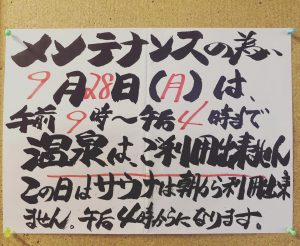 メンテナンスの為、
9月28日(月)は、
午前9時〜午后4時まで
温泉は、ご利用出来ません
この日はサウナは朝から利用出来
ません。午后4時からになります。